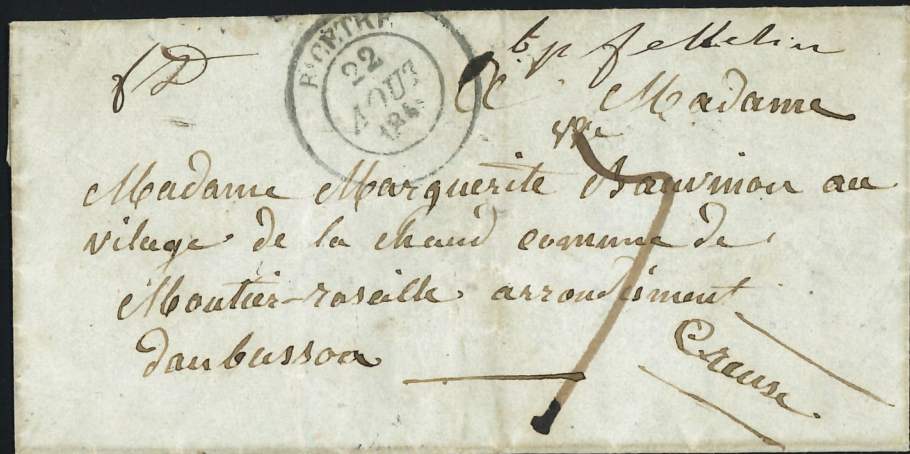 BICÊTRE
22
AOUT
tp felletin
A Madame
vve
Madame Marguerite Bauvinon au
vilage de la chaud comune de
Moutier-roseille arrondisment
daubusson
Creuse
7